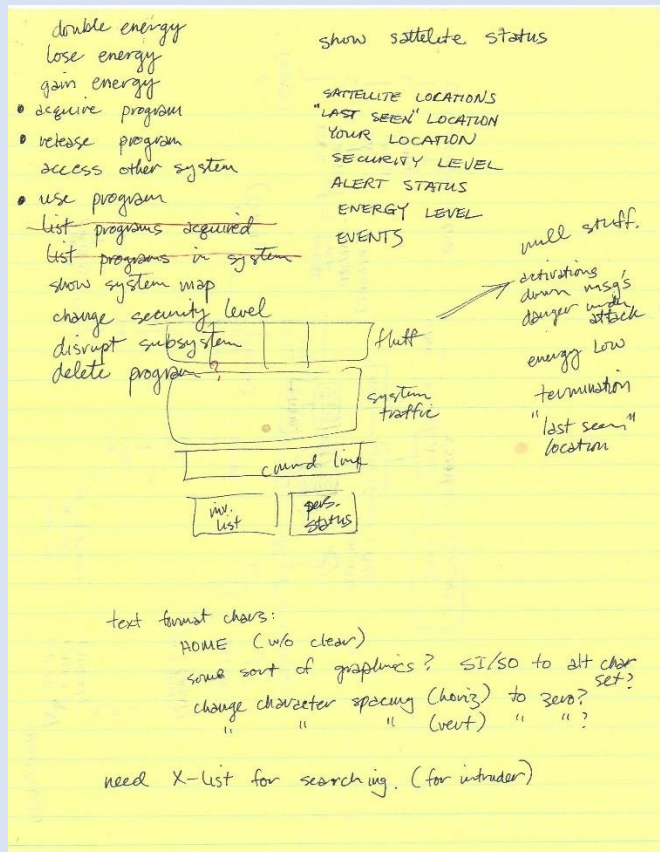 double energy
lose energy
gain energy
• acquire program
• release program
access other system
• use program
list programs acquired
list programs in system
show system map
change security level
disrupt subsystem
delete program?
show sattelite status
SATTELLITE LOCATIONS
"LAST SEEN" LOCATION
YOUR LOCATION
SECURITY LEVEL
ALERT STATUS
ENERGY LEVEL
EVENTS
null stuff.
activations
down msg's
danger under attack
energy low
termination
"last seen"
location
fluff
system
traffic
line
inv.
list
pers.
status
text format chars:
HOME (w/o clear)
some sort of graphincs? SI/SO to alt char
set?
change character spacing (horiz) to zero?
" " " (vert) " " ?
need X-list for searching. (for intruder)